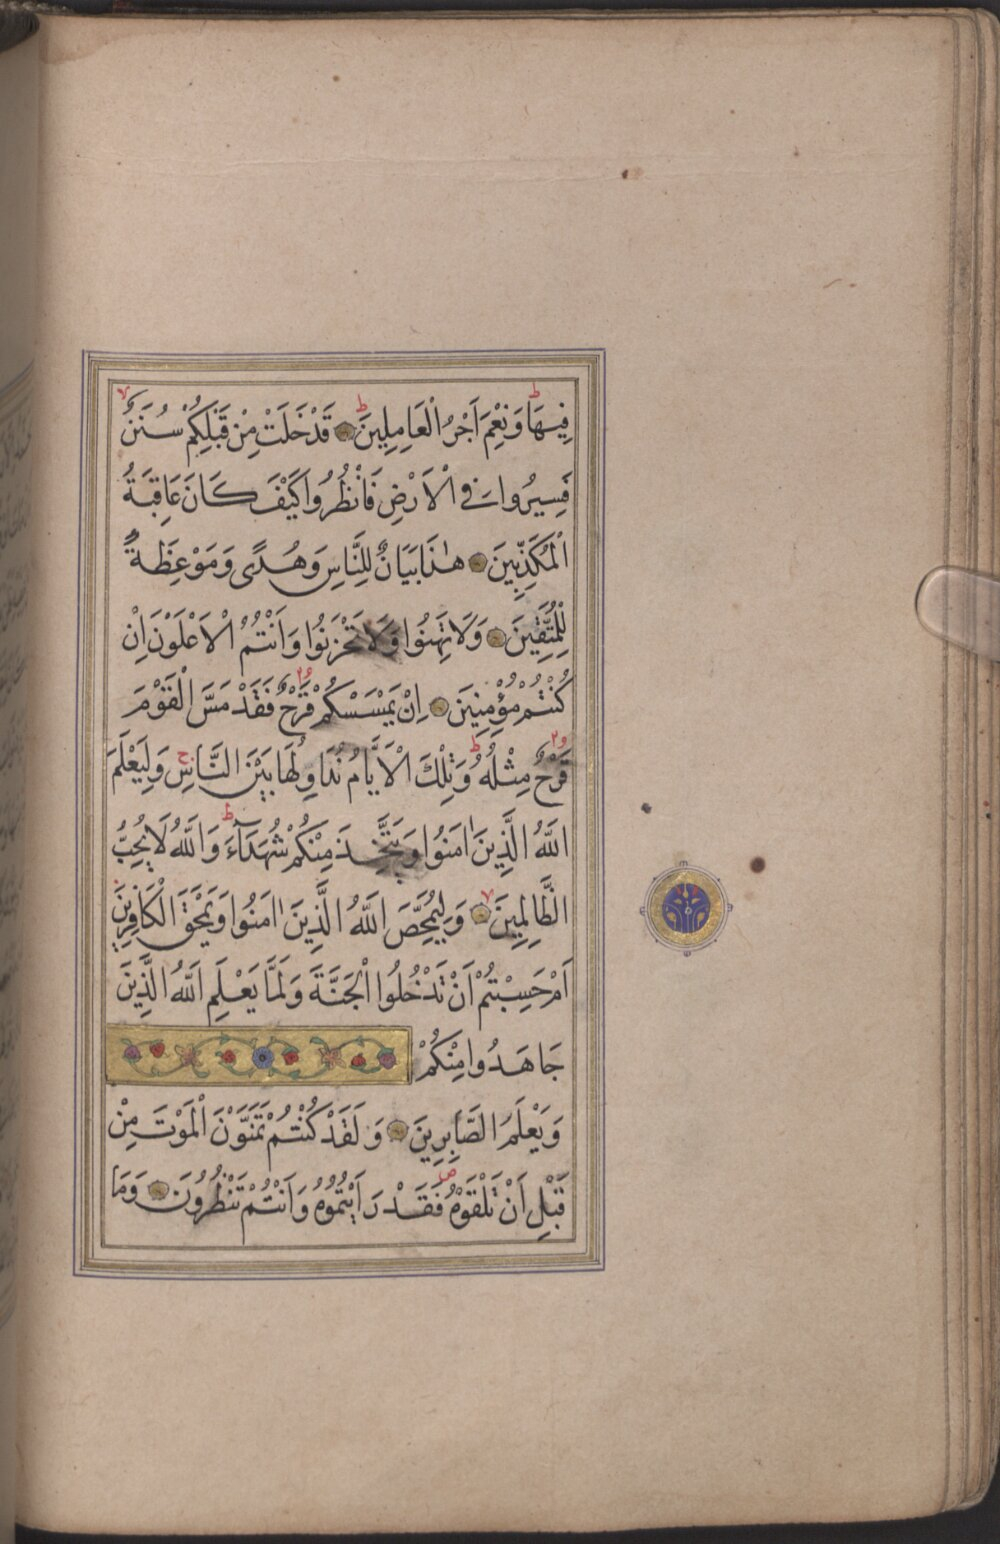 فِيهَا وَنِعْمَ اَجْرُ الْعَامِلِينَ قَدْ خَلَتْ مِنْ قَبْلِكُمْ سُنَنٌ
فَسِيرُوا فِي الْاَرْضِ فَانْظُرُوا كَيْفَ كَانَ عَاقِبَةُ
الْمُكَذِّبِينَ هٰذَا بَيَانٌ لِلنَّاسِ وَهُدًى وَمَوْعِظَةٌ
لِلْمُتَّقِينَ وَلَا تَهِنُوا وَلَا تَحْزَنُوا وَاَنْتُمُ الْاَعْلَوْنَ اِنْ
كُنْتُمْ مُؤْمِنِينَ اِنْ يَمْسَسْكُمْ قَرْحٌ فَقَدْ مَسَّ الْقَوْمَ
قَرْحٌ مِثْلُهُ وَتِلْكَ الْاَيَّامُ نُدَاوِلُهَا بَيْنَ النَّاسِ وَلِيَعْلَمَ
اللّٰهُ الَّذِينَ اٰمَنُوا وَيَتَّخِذَ مِنْكُمْ شُهَدَآءَ وَاللّٰهُ لَا يُحِبُّ
الظَّالِمِينَ وَلِيُمَحِّصَ اللّٰهُ الَّذِينَ اٰمَنُوا وَيَمْحَقَ الْكَافِرِينَ
اَمْ حَسِبْتُمْ اَنْ تَدْخُلُوا الْجَنَّةَ وَلَمَّا يَعْلَمِ اللّٰهُ الَّذِينَ
جَاهَدُوا مِنْكُمْ
وَيَعْلَمَ الصَّابِرِينَ وَلَقَدْ كُنْتُمْ تَمَنَّوْنَ الْمَوْتَ مِنْ
قَبْلِ اَنْ تَلْقَوْهُ فَقَدْ رَاَيْتُمُوهُ وَاَنْتُمْ تَنْظُرُونَ وَمَا